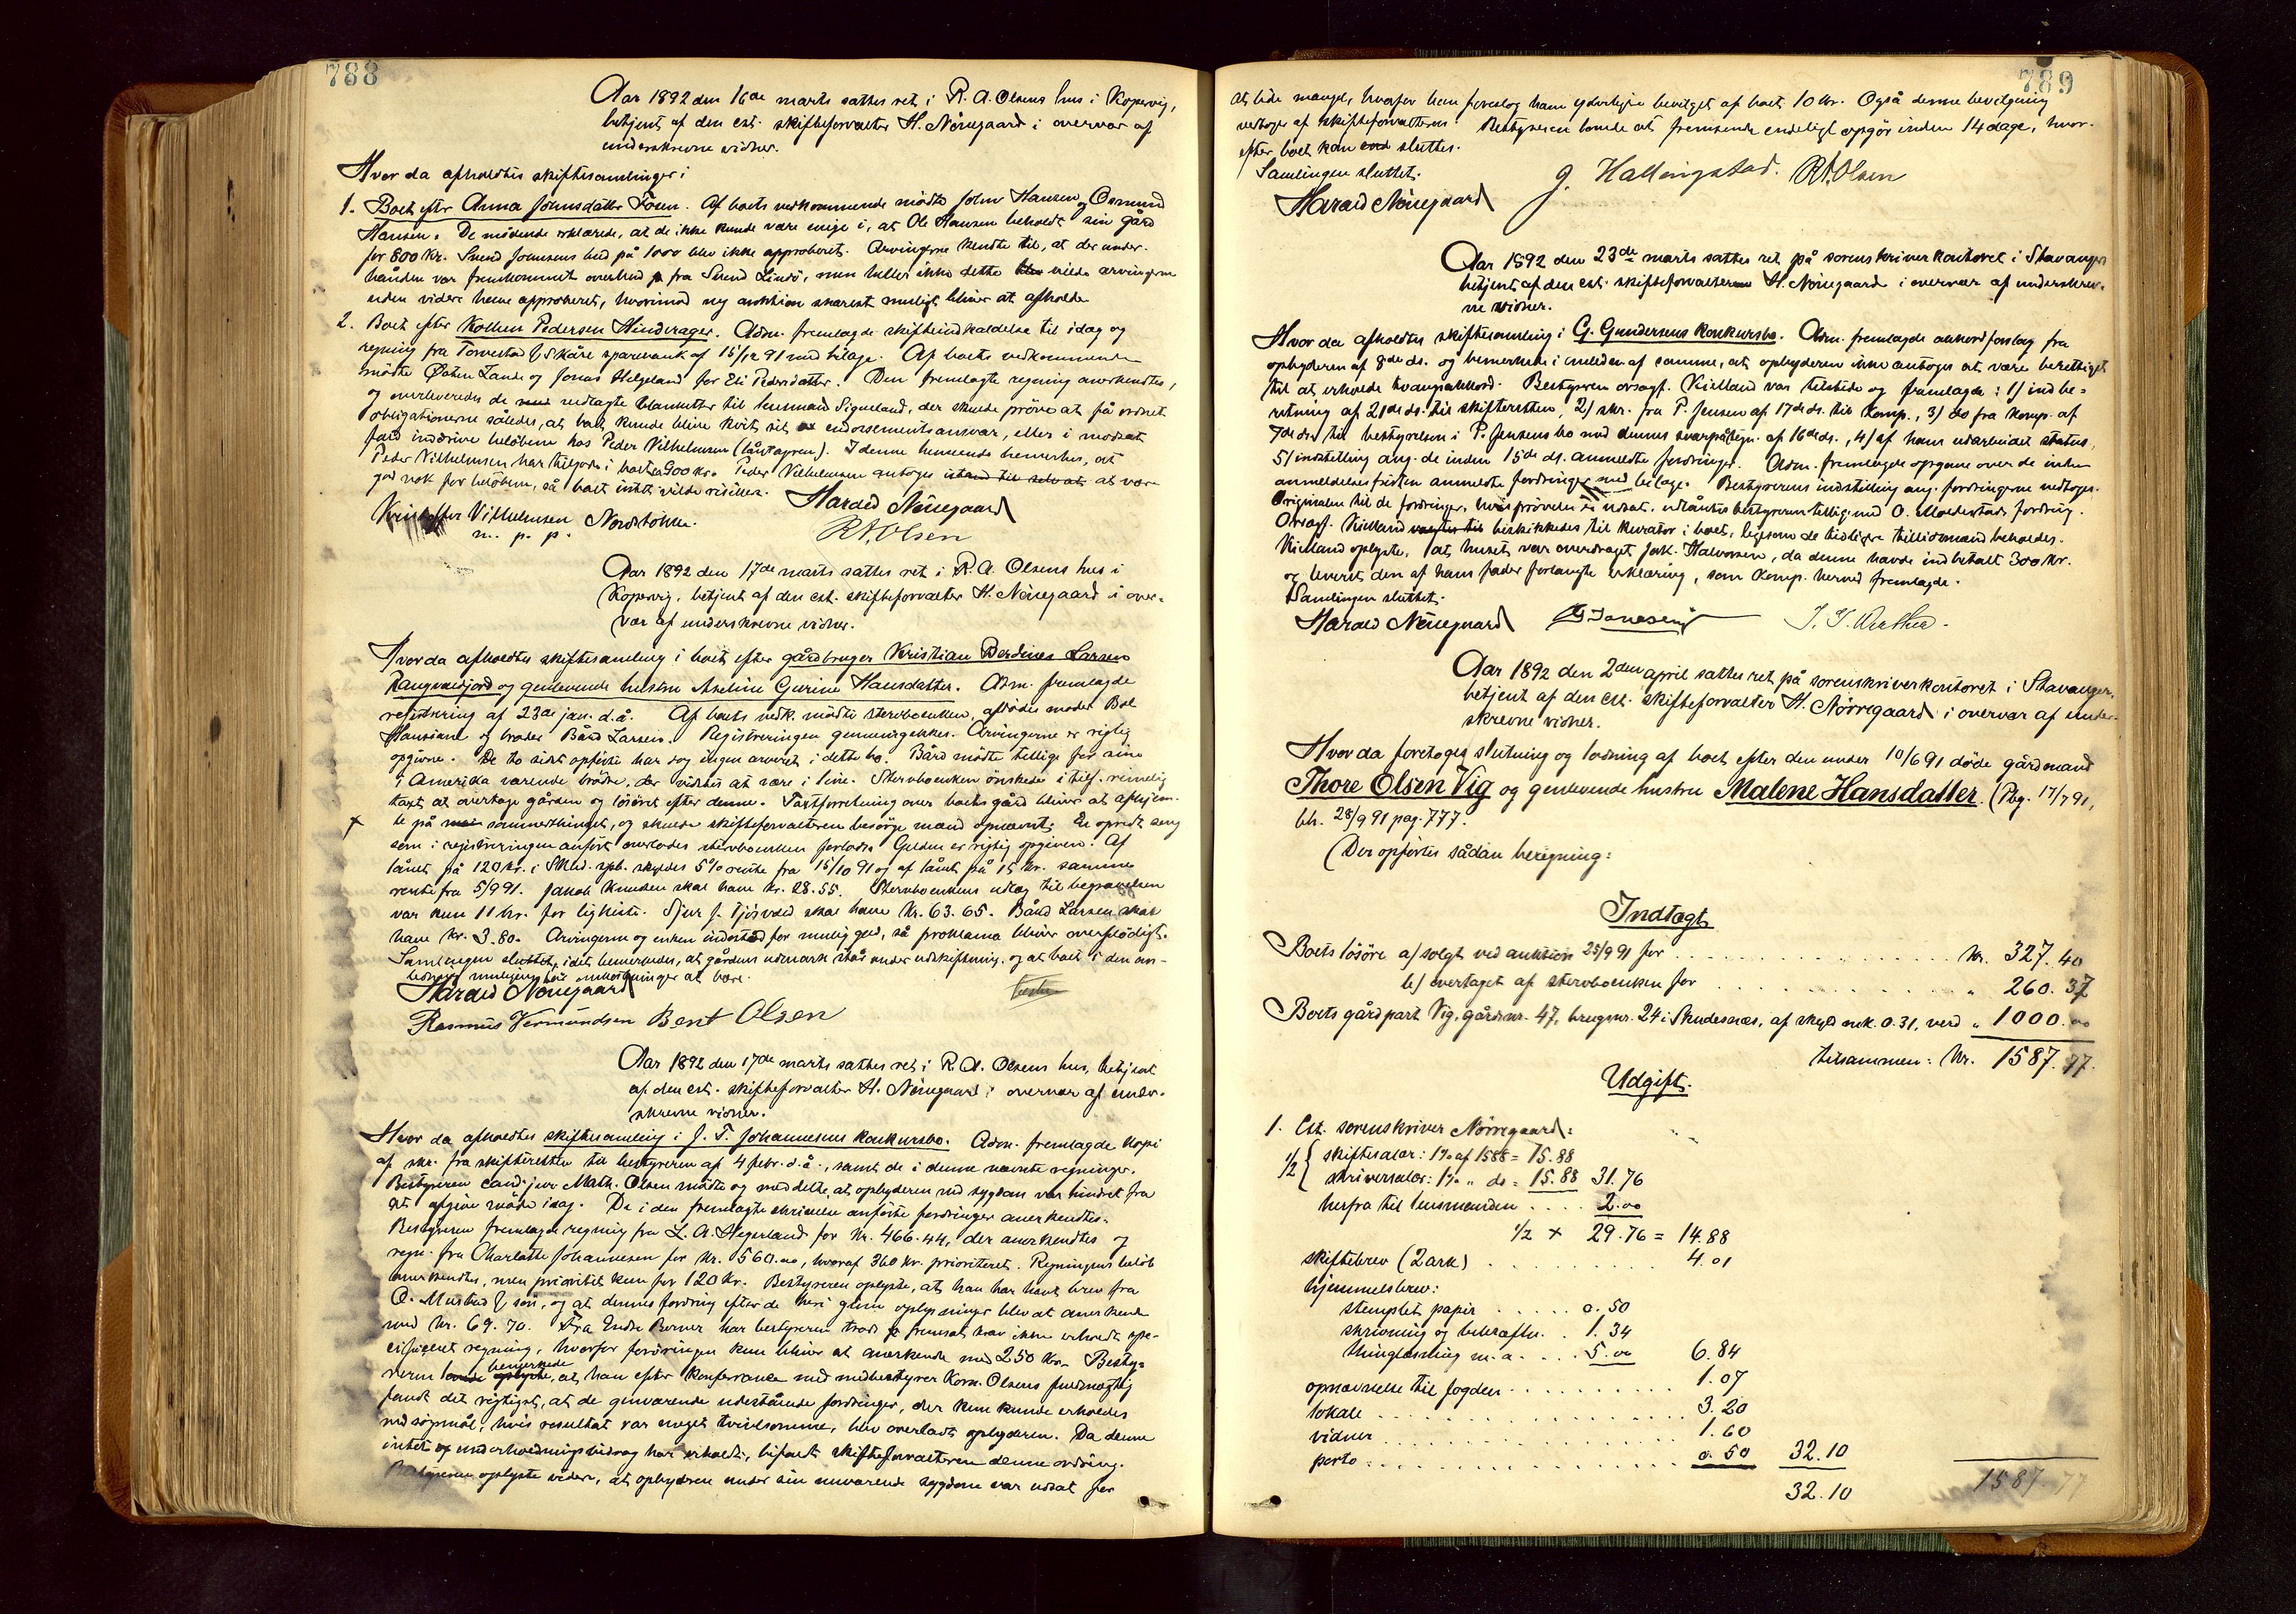 788
Aar 1892 den 16de marts sattes ret i R. A. Olsens hus i Kopervig,
betjent af den cst. skifteforvalter H. Nörregaard i overvær af
underskrevne vidner.
Hvor da afholdtes skiftesamlinger i
1. Boet efter Anna Johnsdatter Fosen. Af boets vedkommende mödte John Hansen og Osmund
Hansen. De mödende erklærede, at de ikke kunde være enige i, at Ole Hansen beholdt sin gård
for 800 kr. Svend Johnsens bud på 1000 blev ikke approberet. Arvingerne kendte til, at der under-
hånden var fremkommet overbud fra Svend Lindö, men heller ikke dette vilde arvingerne
uden videre have approberet, hvorimod ny auktion snarest muligt bliver at afholde
2. Boet efter Kolben Pedersen Hinderager. Adm. fremlagde skifteindkaldelse til idag og
regning fra Torvestad & Skåre sparebank af 15/12 91 med bilage. Af boets vedkommende
mödte Östen Lande og Jonas Helgeland for Eli Pedersdatter. Den fremlagte regning anerkendtes,
og overleveredes de vedlagte blanketter til lensmand Sigveland, der skulde pröve at få ordnet
obligationerne således, at boet kunde blive kvit sit endorsementsansvar, eller i modsat
fald inddrive belöbene hos Peder Vilhelmsen (låntageren). I denne henseende bemerkes, at
Peder Vilhelmsen har tilgode i boet ca 900 kr. Peder Vilhelmsen antoges at være
god nok for belöbene, så boet intet vilde risikere.
Harald Nörregaard
Kristoffer Vilhelmsen Nordstokke
m. p. p.
R A Olsen
Aar 1892 den 17de marts sattes ret i R. A. Olsens hus i
Kopervig, betjent af den cst. skifteforvalter H. Nörregaard i over-
vær af underskrevne vidner.
Hvor da afholdtes skiftesamling i boet efter gårdbruger Kristian Berdines Larsen
Rangvaldjord og genlevende hustru Aseline Gurine Hansdatter. Adm. fremlagde
registrering af 23de jan. d.å. Af boets vedk. mödte sterboenken, afdödes moder Bol
Hansiane og broder Bård Larsen. Registreringen gennemgikkes. Arvingerne er rigtig
opgivne. De to sidst opförte har dog ingen arveret i dette bo. Bård mödte tillige for sine
i Amerika værende brödre, der vidstes at være i live. Sterboenken önskede i tilf. rimelig
taxt at overtage gården og lösöret efter denne. Taxtforretning over boets gård bliver at afhjem-
x le på sommerthinget, og skulde skifteforvalteren besörge mænd opnævnt. En opredt seng
som i registreringen anfört overlodes sterboenken forlods. Gælden er rigtig opgiven. Af
lånet på 120 kr. i Skbd. spb. skyldes 5% rente fra 15/10 91 og af lånet på 15 kr. samme
rente fra 5/9 91. Jakob Knudsen skal have kr. 28.55. Sterboenkens udlæg til begravelsen
var kun 11 kr. for ligkiste. Sjur J. Tjösvold skal have kr. 63.65. Bård Larsen skal
have kr. 3.80. Arvingerne og enken indestod for mulig gæld, så proklama bliver overflödigt.
Samlingen sluttet, idet bemerkedes, at gårdens udmark står under udskiftning, og at boet i den an-
ledning muligens har omkostninger at bære.
Harald Nörregaard
Rasmus Vermundsen Bent Olsen
Aar 1892 den 17de marts sattes ret i R. A. Olsens hus, betjent
af den cst. skifteforvalter H. Nörregaard i overvær af under-
skrevne vidner.
Hvor da afholdtes skiftesamling i J. T. Johannesens konkursbo. Adm. fremlagde kopi
af skr. fra skifteretten til bestyreren af 4 febr. d.å., samt de i denne nævnte regninger.
Bestyreren cand. jur. Math. Olsen mödte og meddelte, at opbyderen ved sygdom var hindret fra
at afgive möde idag. De i den fremlagte skrivelse anförte fordringer anerkendtes.
Bestyreren fremlagde regning fra L. A. Hegerland for kr. 466.44, der anerkendtes og
regn. fra Charlotte Johannesen for kr. 560.00, hvoraf 360 kr. prioriteret. Regningens belöb
anerkendtes, men prioritet kun for 120 kr. Bestyreren oplyste, at han har havt brev fra
O. Mustad & sön, og at dennes fordring efter de heri givne oplysninger blev at anerkende
med kr. 69.70. Fra Endre Berner har bestyreren trods fremsat krav ikke erholdt spe-
cificeret regning, hvorfor fordringen kun bliver at anerkende med 250 kr. Besty-
reren bemerkede, at han efter konferance med medbestyrer Korn. Olsens fuldmægtig
fandt det rigtigst, at de genværende udestående fordringer, der kun kunde erholdes
ved sögsmål, hvis resultat var meget tvivlsomme, blev overladt opbyderen. Da denne
intet underholdningsbidrag har erholdt, bifaldt skifteforvalteren denne ordning.
Bestyreren oplyste videre, at opbyderen under sin nuværende sygdom var udsat for
789
at lide mangel, hvorfor han foreslog ham yderligere bevilget af boet 10 kr. Også denne bevilgning
vedtoges af skifteforvalteren. Bestyreren lovede at fremsende endeligt opgör inden 14 dage, hvor-
efter boet kan sluttes.
Samlingen sluttet.
Harald Nörregaard G. Hallingstad. R A Olsen
Aar 1892 den 23de marts sattes ret på sorenskriverkontoret i Stavanger
betjent af den cst. skifteforvalter H. Nörregaard i overvær af underskrev-
ne vidner.
Hvor da afholdtes skiftesamling i G. Gundersens konkursbo. Adm. fremlagde akkordforslag fra
opbyderen af 8de ds. og bemerkede i anledning af samme, at opbyderen ikke antoges at være berettiget
til at erholde tvangsakkord. Bestyreren ovsagf. Kielland var tilstede og fremlagde: 1/ indbe-
retning af 21de ds. til skifteretten, 2/ skr. fra P. Jensen af 17de ds. til komp., 3/ do fra komp. af
7de ds. til bestyrelsen i P. Jensens bo med dennes svarpåtegn. af 16de ds., 4/ af ham udarbeidet status
5/ indstilling ang. de inden 15de ds. anmeldte fordringer. Adm. fremlagde opgave over de inden
anmeldelsesfristen anmeldte fordringer med bilage. Bestyrerens indstilling ang. fordringerne vedtoges.
Originalen til de fordringer, hvis prövelse er udsat, udlåntes bestyreren tilligemed O. Moldestads fordring.
Ovsagf. Kielland beskikkedes til kurator i boet, ligesom de tidligere tillidsmænd beholdes.
Kielland oplyste, at huset var overdraget Jak. Halvorsen, da denne havde indbetalt 300 kr.
og leveret den af hans fader forlangte erklæring, som komp. herved fremlagde.
Samlingen sluttet.
Harald Nörregaard
Aar 1892 den 2den april sattes ret på sorenskriverkontoret i Stavanger,
betjent af den cst. skifteforvalter H. Nörregaard i overvær af under-
skrevne vidner.
Hvor da foretoges slutning og lodning af boet efter den under 10/6 91 döde gårdmand
Thore Olsen Vig og genlevende hustru Malene Hansdatter. (Reg. 17/7 91,
beh. 28/9 91 pag. 777.
(Der opförtes sådan beregning:
Indtægt
Boets lösöre a/ solgt ved auktion 25/9 91 for . . . . . . kr. 327.40
b/ overtaget af sterboenken for . . . . . . " 260.37
Boets gårdpart Vig, gårdsnr. 47, brugsnr. 24 i Skudesnæs, af skyld mk. 0.31, verd " 1000.00
tilsammen: kr. 1587.77.
Udgift.
1. Cst. sorenskriver Nörregaard:
1/2 { skiftesalær: 1% af 1588 = 15.88
skriversalær: 1% " do = 15.88 31.76
herfra til lensmanden . . . . 2.00
1/2 x 29.76 = 14.88
skiftebrev (2 ark) . . . . . . 4.01
hjemmelsbrev:
stemplet papir . . . . . 0.50
skrivning og bekræftn. . 1.34
thinglæsning m. a. . . . 5.00 6.84
opnævnelse til fogden . . . . . . 1.07
lokale . . . . . . 3.20
vidner . . . . . . 1.60
porto . . . . . . 0.50 32.10
32.10 1587.77